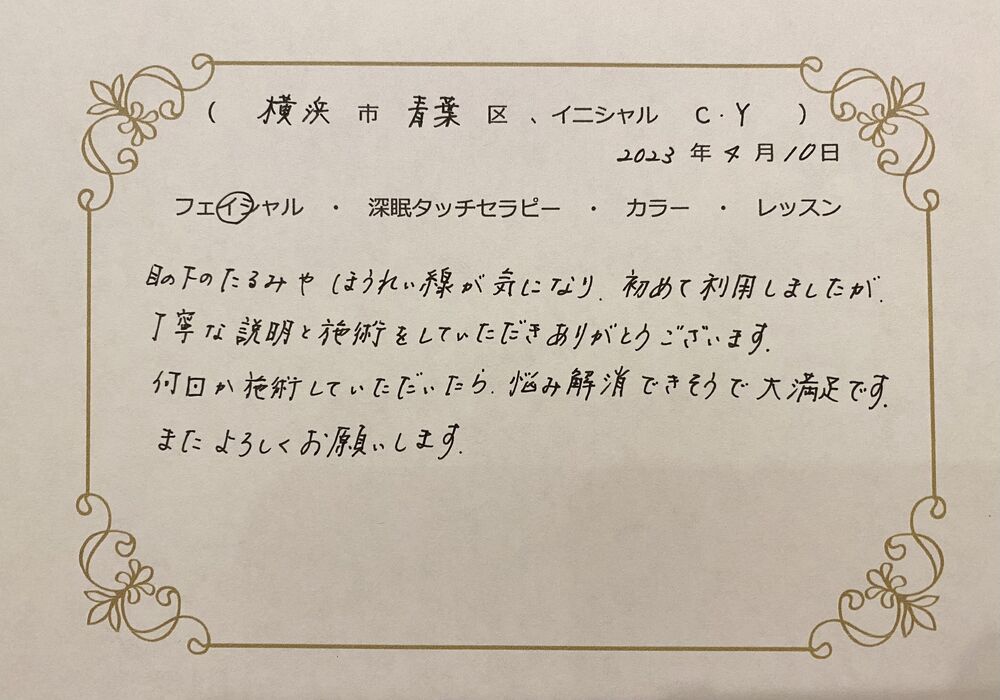 ( 横浜 市 青葉 区 、イニシャル C・Y )
2023 年 4 月 10 日
フェイシャル ・ 深眠タッチセラピー ・ カラー ・ レッスン
目の下のたるみや ほうれい線が気になり、初めて利用しましたが、
丁寧な説明と施術をしていただきありがとうございます。
何回か施術していただいたら、悩み解消できそうで大満足です。
またよろしくお願いします。